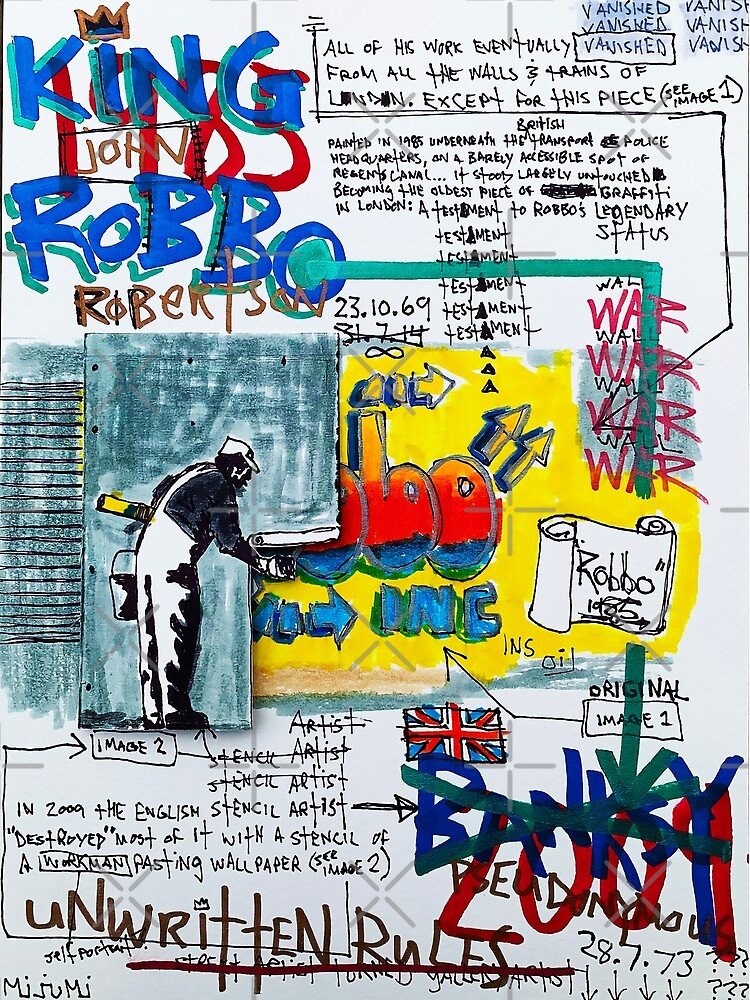 KING
LDS
JOHN
ROBBO
ROBERTSON
VANISHED VANISH
VANISHED VANISH
VANISHED VANISH
ALL OF HIS WORK EVENTUALLY
FROM ALL THE WALLS & TRAINS OF
LONDON. EXCEPT FOR THIS PIECE (SEE IMAGE 1)
PAINTED IN 1985 UNDERNEATH THE BRITISH TRANSPORT POLICE
HEADQUARTERS, ON A BARELY ACCESSIBLE SPOT OF
REGENTS CANAL... IT STOOD LARGELY UNTOUCHED
BECOMING THE OLDEST PIECE OF GRAFFITI
IN LONDON: A TESTAMENT TO ROBBO'S LEGENDARY
STATUS
TESTAMENT
TESTAMENT
TESTAMENT
TESTAMENT
TESTAMENT
23.10.69
31.7.14
∞
WAL
WAR
WAL
WAR
WALL
WAR
WALL
WAR
bbo
INC
"Robbo"
1985
INS oil
ORIGINAL
IMAGE 1
IMAGE 2
ARTIST
STENCIL ARTIST
STENCIL ARTIST
IN 2009 THE ENGLISH STENCIL ARTIST
"DESTROYED" MOST OF IT WITH A STENCIL OF
A WORKMAN PASTING WALLPAPER (SEE IMAGE 2)
BANKSY
2009
PSEUDONYMOUS
UNWRITTEN RULES
self portrait
STREET ARTIST TURNED GALLERY ARTIST
28.7.73 ??
???
MiJuMi